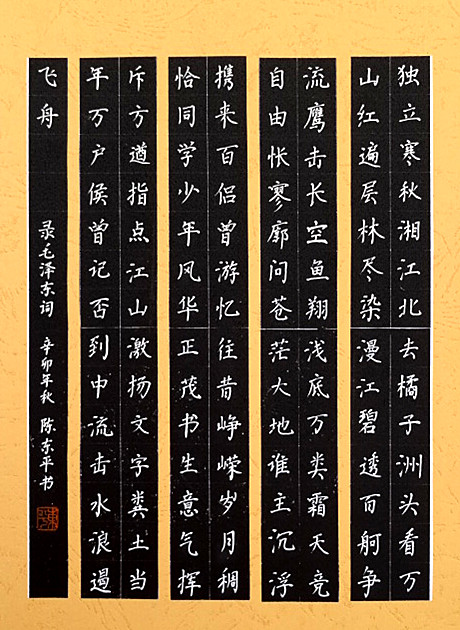 独立寒秋湘江北去橘子洲头看万
山红遍层林尽染漫江碧透百舸争
流鹰击长空鱼翔浅底万类霜天竞
自由怅寥廓问苍茫大地谁主沉浮
携来百侣曾游忆往昔峥嵘岁月稠
恰同学少年风华正茂书生意气挥
斥方遒指点江山激扬文字粪土当
年万户侯曾记否到中流击水浪遏
飞舟 录毛泽东词 辛卯年秋 陈东平书